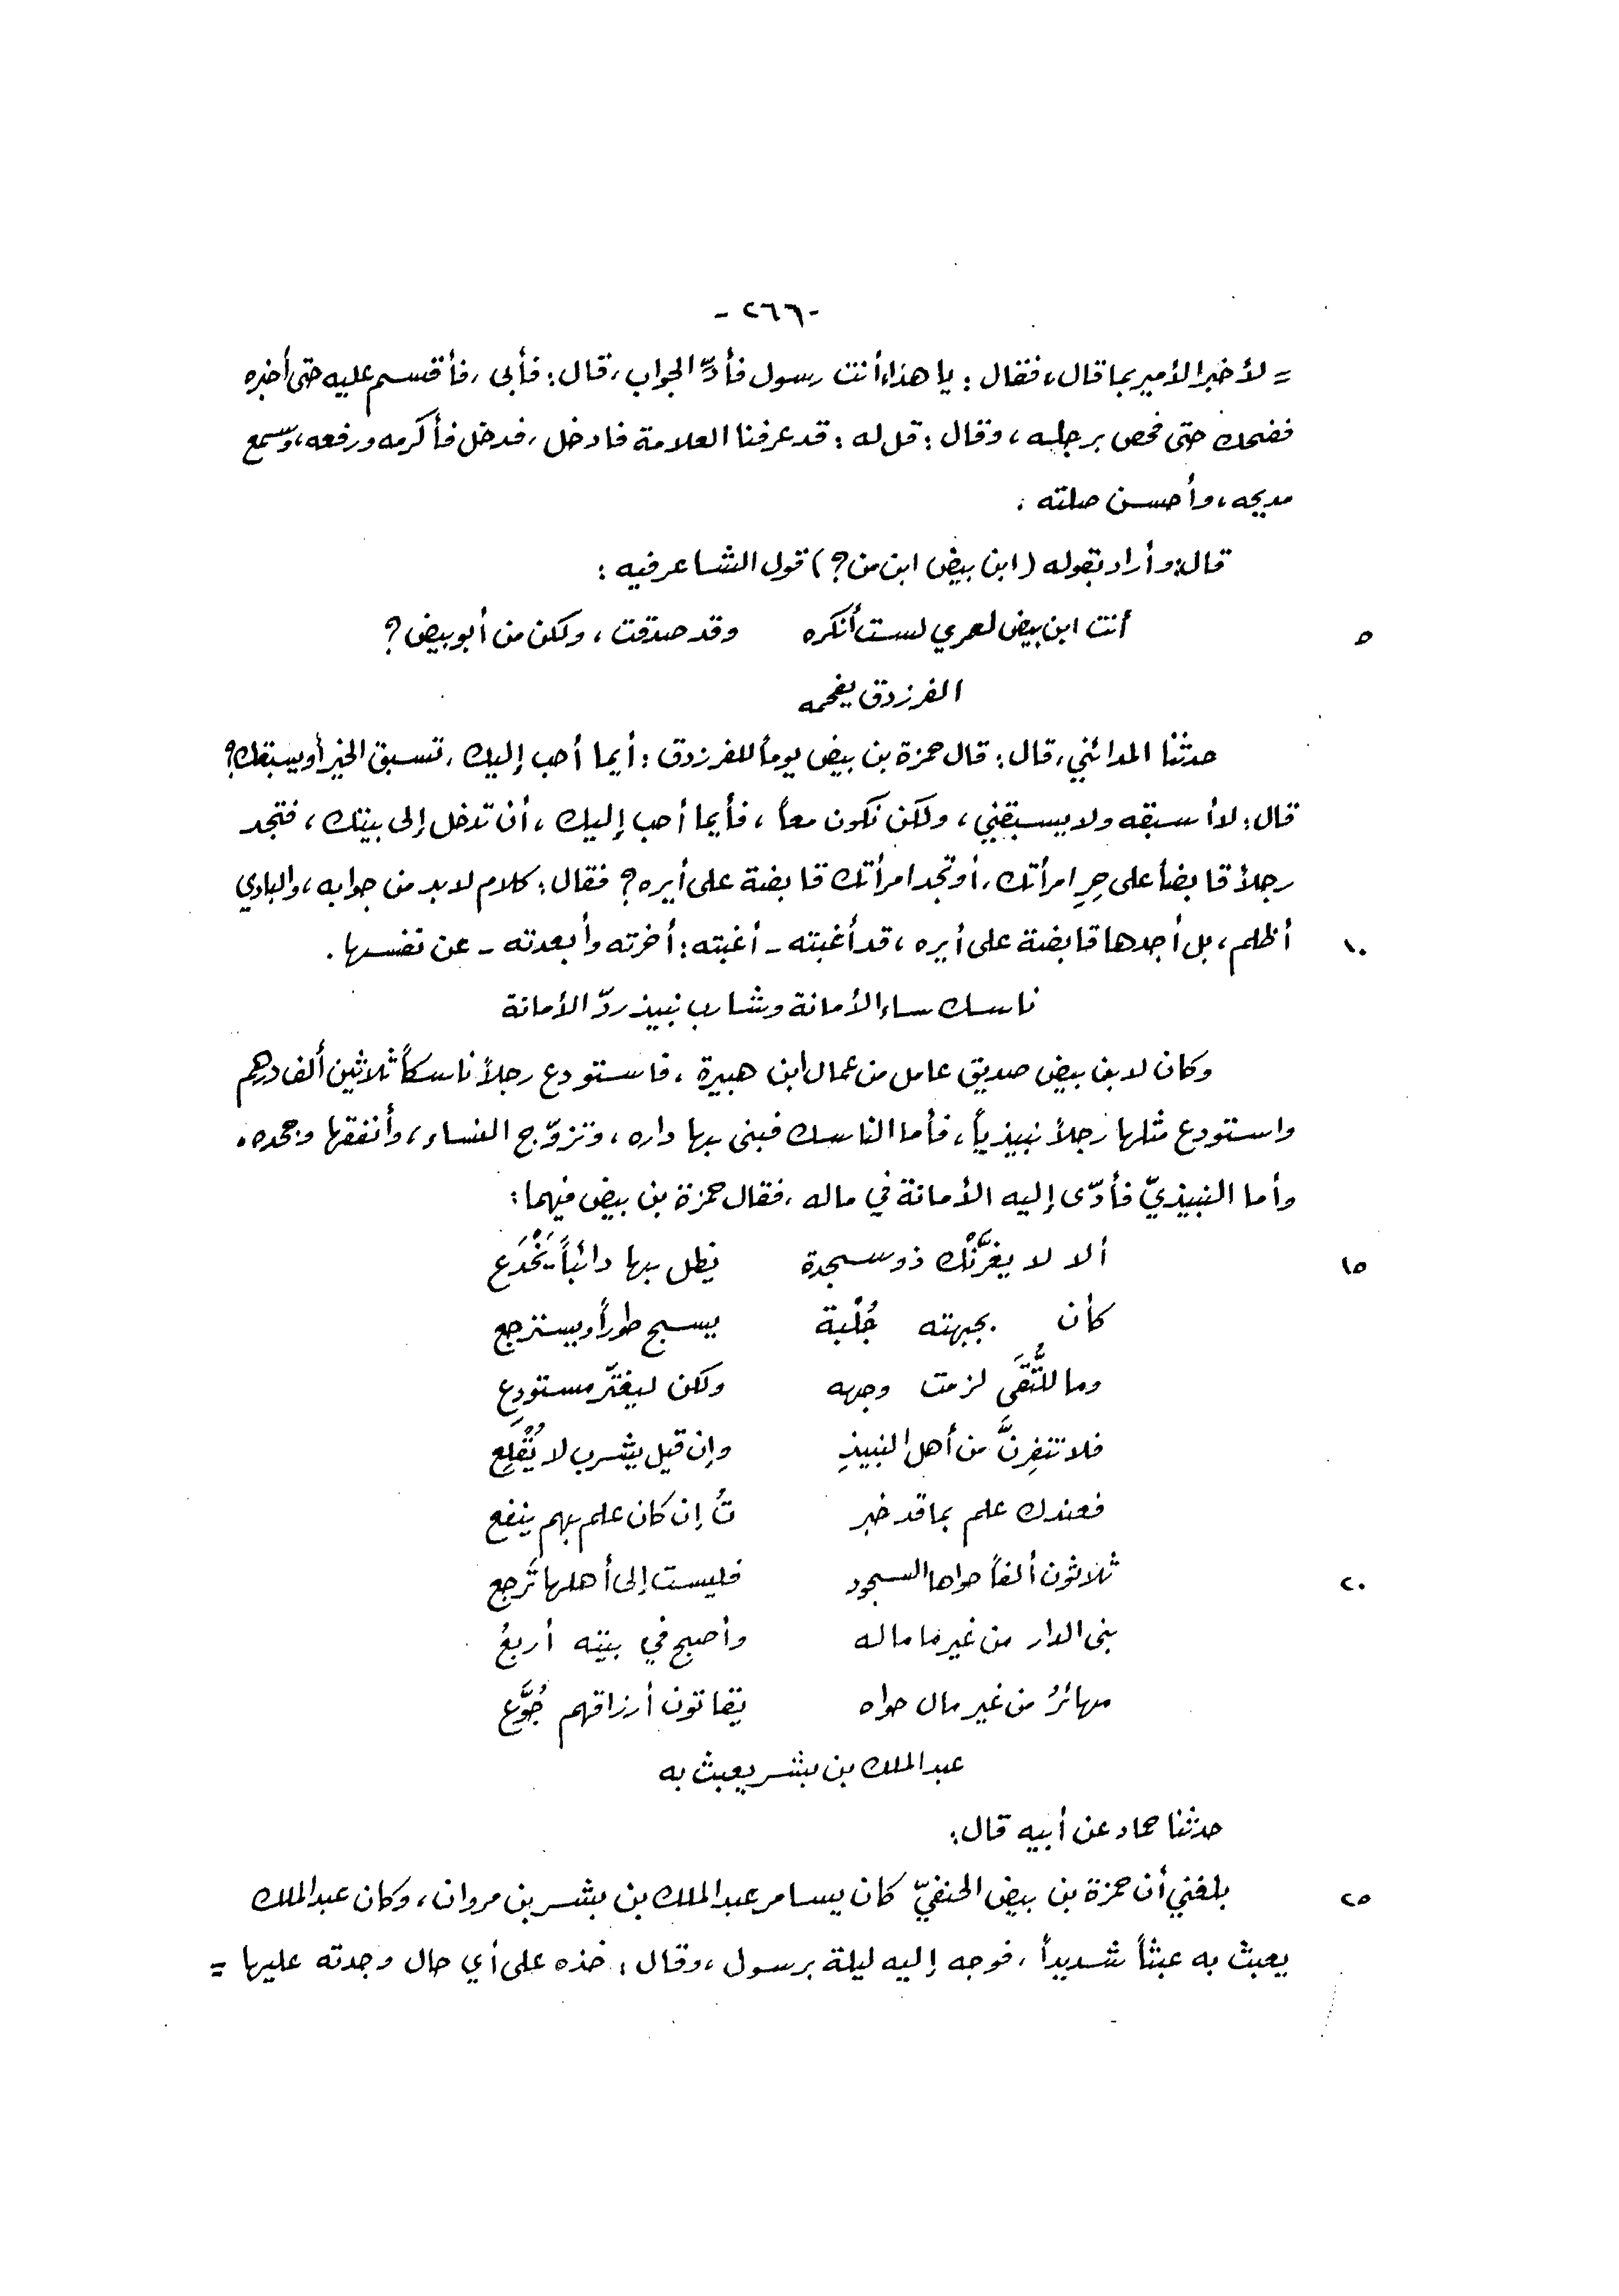 -٢٦٦-
= لأخبر الأمير بما قال، فقال: يا هذا، أنت رسول فأدِّ الجواب، قال: فأبى، فأقسم عليه حتى أخبره
فضحك حتى فحص برجليه، وقال: قل له: قد عرفنا العلامة فادخل، فدخل فأكرمه ورفعه، وسمع
مديحه، وأحسن صلته.
قال: وأراد بقوله (ابن بيض ابن من؟) قول الشاعر فيه:
أنت ابن بيض لعمري لست أنكره وقد صدقت، ولكن من أبو بيض؟ ٥
الفرزدق يفحمه
حدثنا المدائني، قال: قال حمزة بن بيض يوماً للفرزدق: أيما أحب إليك، تسبق الخير أو يسبقك؟
قال: لا أسبقه ولا يسبقني، ولكن نكون معاً، فأيما أحب إليك، أن تدخل إلى بيتك، فتجد
رجلاً قابضاً على حِرِ امرأتك، أو تجد امرأتك قابضة على أيره؟ فقال: كلام لا بد من جوابه، والبادي
أظلم، بل أجدها قابضة على أيره، قد أغبته - أغبته: أخرته وأبعدته - عن نفسها. ١٠
ناسك ساء الأمانة وشارب نبيذ ردّ الأمانة
وكان لابن بيض صديق عامل من عمال ابن هبيرة، فاستودع رجلاً ناسكاً ثلاثين ألف درهم
واستودع مثلها رجلاً نبيذياً، فأما الناسك فبنى بها داره، وتزوّج النساء، وأنفقها وجحده.
وأما النبيذيّ فأدّى إليه الأمانة في ماله، فقال حمزة بن بيض فيهما:
ألا لا يغرَّنْك ذو سجدة يظل بها دائباً يَخْدَع ١٥
كأن بجبهته جُلْبة يسبح طوراً ويسترجع
وما للتُّقَى لزمت وجهه ولكن ليغترّ مستودِع
فلا تنفِرنَّ من أهل النبيذِ وإن قيل يشرب لا يُقْلِع
فعندك علم بما قد خبر تُ إن كان علم بهم ينفع
ثلاثون ألفاً حواها السجود فليست إلى أهلها تَرجع ٢٠
بنى الدار من غير ما ماله وأصبح في بيته أربعُ
مهائرُ من غير مال حواه يقاتون أرزاقهم جُوَّع
عبد الملك بن بشر يعبث به
حدثنا حماد عن أبيه قال:
بلغني أن حمزة بن بيض الحنفيّ كان يسامر عبد الملك بن بشر بن مروان، وكان عبد الملك ٢٥
يعبث به عبثاً شديداً، فوجه إليه ليلة برسول، وقال: خذه على أي حال وجدته عليها =